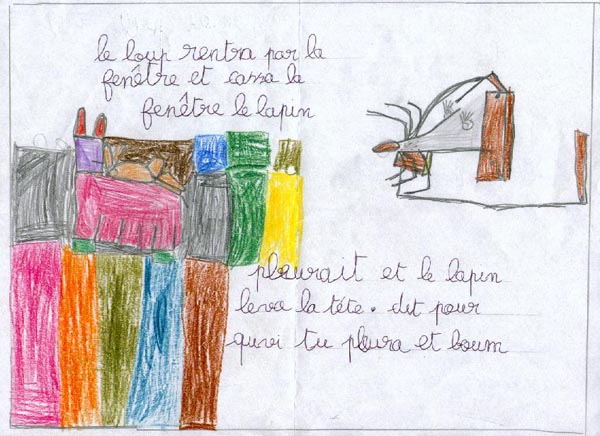 le loup rentra par la
fenêtre et cassa la
fenêtre le lapin
pleurait et le lapin
leva la tête. dit pour
quoi tu pleura et boum